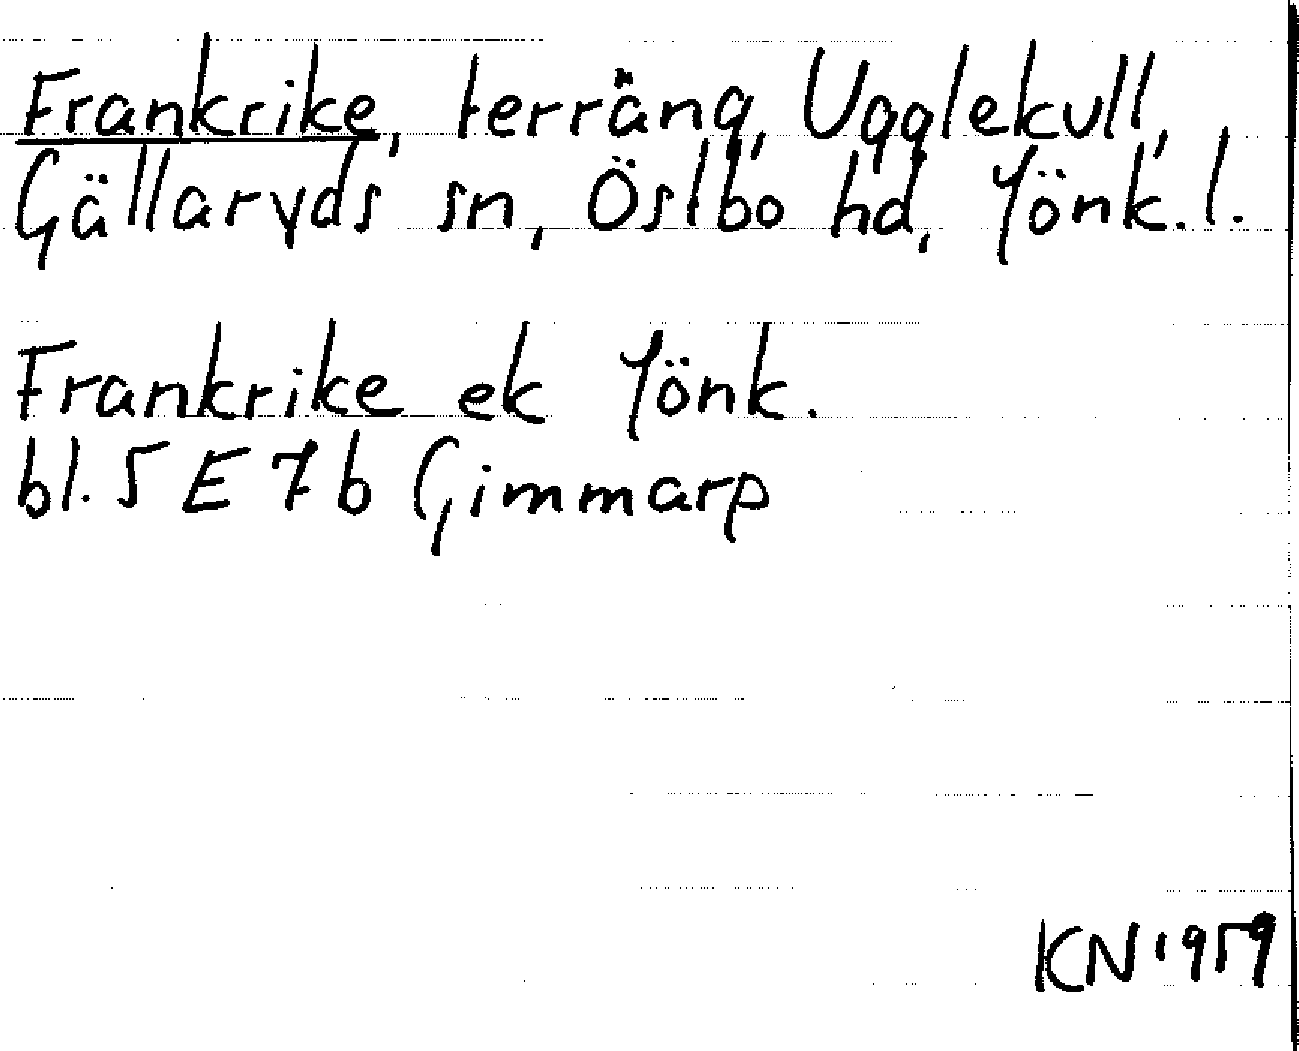 Frankrike, terräng, Ugglekull,
Gällaryds sn, Östbo hd, Jönk.l.
Frankrike ek Jönk.
bl. 5 E 7 b Gimmarp
KN 1959